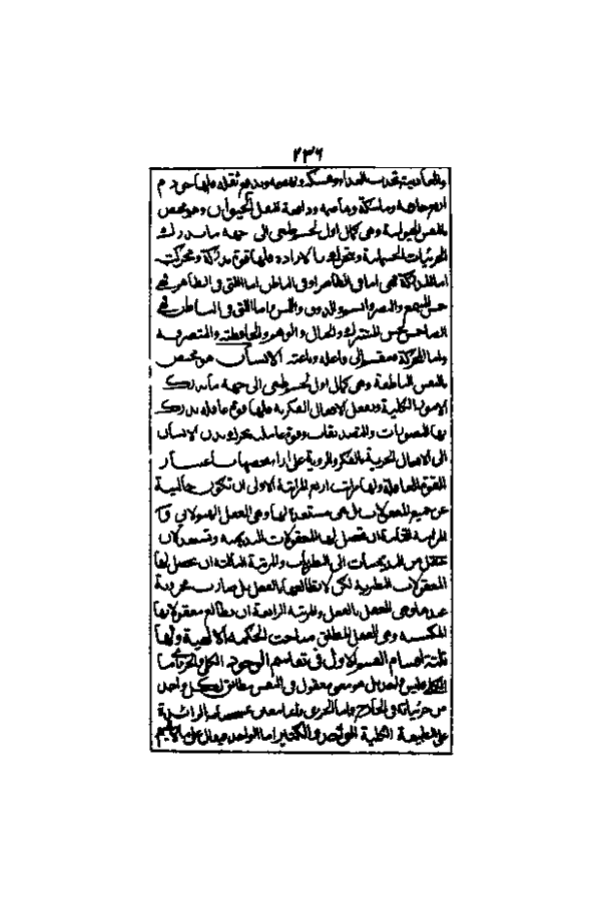 ٢٣٦
والغاذية تجذب الغذاء وتمسكه وتهضمه وتدفع ثقله فلها خوادم
اربع جاذبة وماسكة وهاضمة ودافعة للثقل الحيوان وهو مختص
بالنفس الحيوانية وهى كمال اول لجسم طبيعى الى من جهة ما يدرك
الجزئيات الجسمانية ويتحرك بالارادة فلها قوة مدركة ومحركة
اما المدركة فهى اما فى الظاهر او فى الباطن اما التى فى الظاهر فهى
خمس السمع والبصر والشم والذوق واللمس واما التى فى الباطن فهى
ايضا خمس الحس المشترك والخيال والوهم والحافظة والمتصرفة
واما المحركة فمنقسمة الى فاعلة وباعثة الانسان هو مختص
بالنفس الناطقة وهى كمال اول لجسم طبيعى الى من جهة ما يدرك
الامور الكلية ويفعل الافعال الفكرية فلها قوة عاقلة يدرك
بها التصورات والتصديقات وقوة عاملة تحرك بدن الانسان
الى الافعال الجزئية بالفكر والروية على اراء تخصها باعتبار
القوة العاقلة ولها مراتب اربع المرتبة الاولى ان تكون خالية
عن جميع المعقولات بل هى مستعدة لها وهى العقل الهيولانى
المرتبة الثانية ان تحصل لها المعقولات البديهية وتستعد لان
تنتقل من البديهيات الى النظريات والمرتبة الثالثة ان يحصل لها
المعقولات النظرية لكن لا تطالعها بالفعل بل صارت مخزونة
عندها وهى العقل بالفعل والمرتبة الرابعة ان تطالع معقولاتها
المكتسبة وهى العقل المطلق مباحث الحكمة الالهية ولها
ثلثة اقسام القسم الاول فى تقاسيم الوجود الكلى والجزئى اما
الكلى فليس واحدا بل هو معنى معقول فى النفس مطابق لكل واحد
من جزئياته فى الخارج واما الجزئى فانما يتعين بمشخصاته الزائدة
على الطبيعة الكلية الواحد والكثير اما الواحد فيقال على ما لا ينقسم